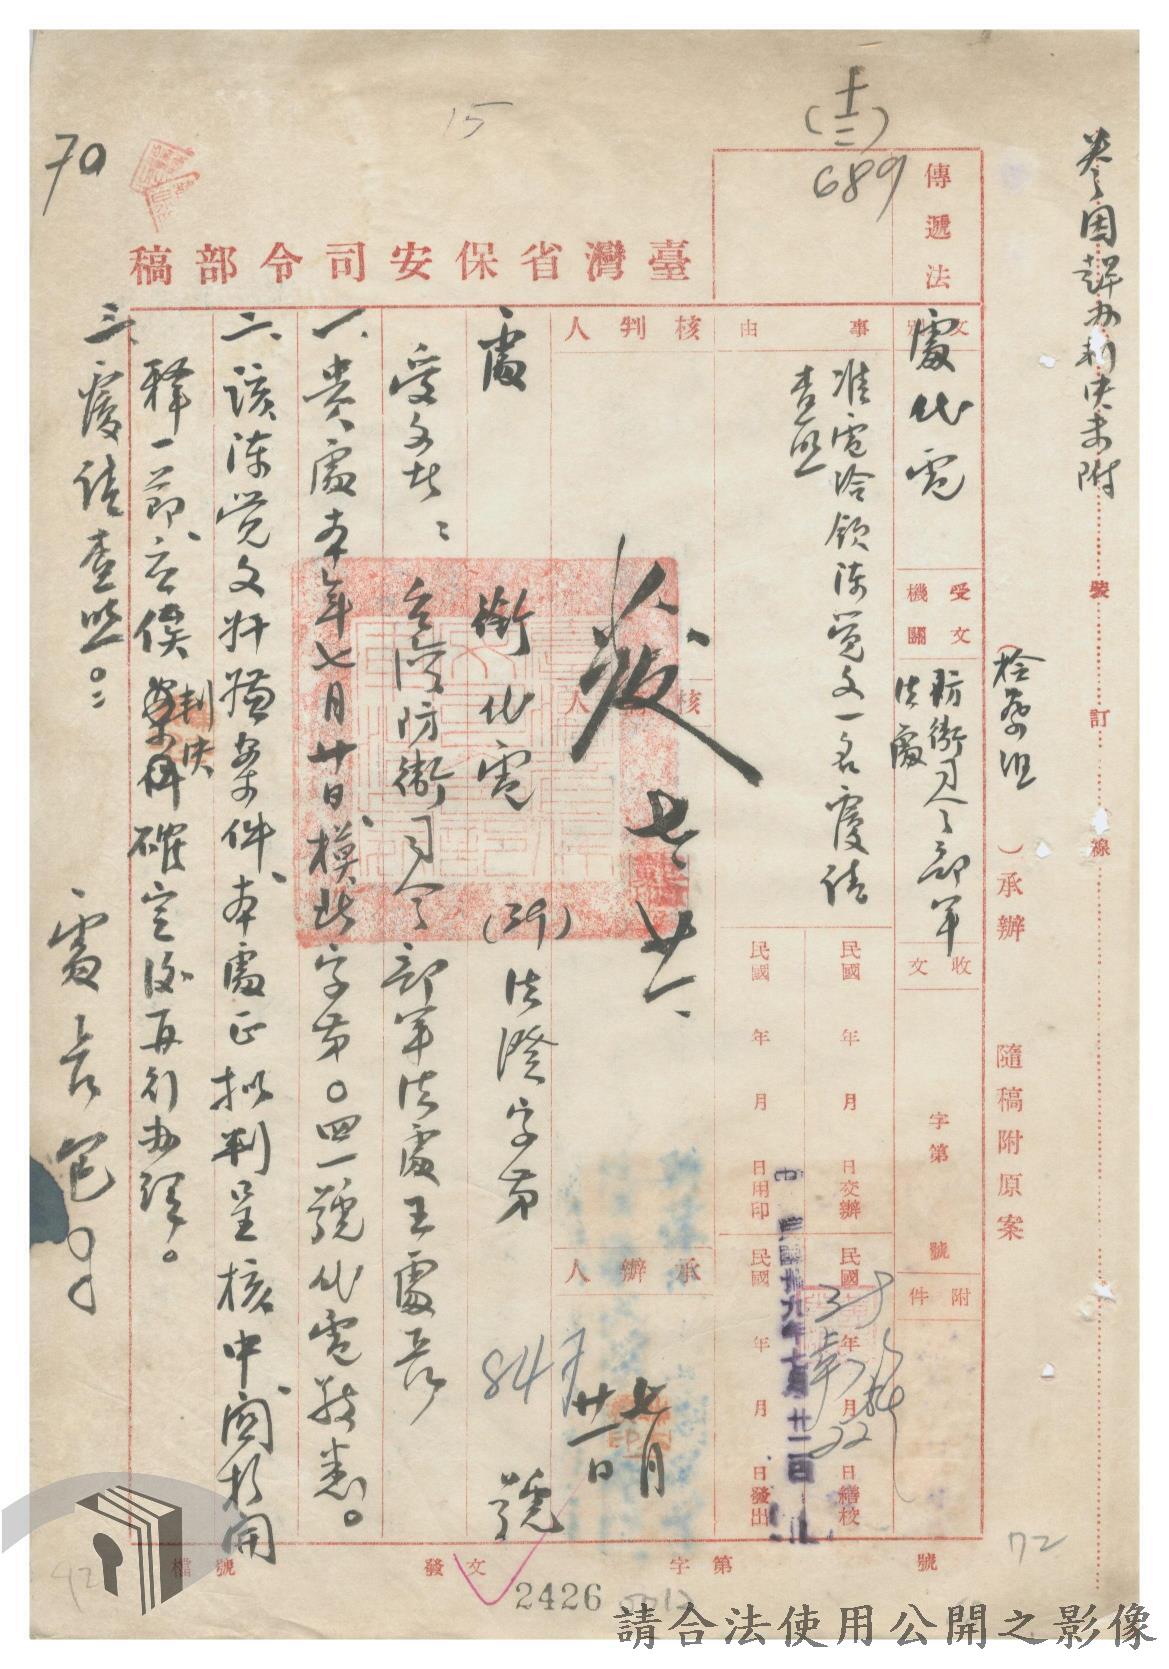 卷因辦判決未附
裝
訂
線
檢察組）承辦
隨稿附原案
十
(三)
689
15
70
傳遞法
臺灣省保安司令部稿
文別
處代電
受文機關
防衛司令部軍法處
收文
字第
號
附件
事由
准電洽領陳覺文一名覆請
查照
民國 年 月 日交辦
民國 年 月 日繕校
民國 年 月 日用印
民國 年 月 日發出
中華民國卅九年七月廿一日
22
核判人
發 七 廿一
核
人
承辦人
七月廿一日
處 銜代電 (39)法潔字第 847 號
受文者：台灣防衛司令部軍法處王處長
一、貴處本年七月廿日模比字第○四一號代電敬悉。
二、該陳覺文奸嫌案件、本處正擬判呈核中、關於開
釋一節、應俟判決確定後再行辦理。
三、覆請查照。
處長包○
檔號
發文
字第
號
2426
72
請合法使用公開之影像